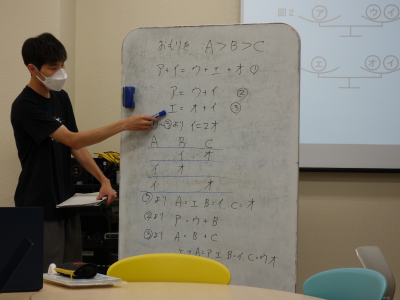 おもりを A>B>C
ア+イ=ウ+エ+オ ①
ア=ウ+イ ②
エ=オ+イ ③
より イ=2オ
A B C
イ オ
イ オ
イ オ
①より A=エ B=イ C=オ
②より ア=ウ+B
③より A=B+C
A=ア,エ B=イ C=ウ,オ
図2
ア ウ イ
エ オ イ